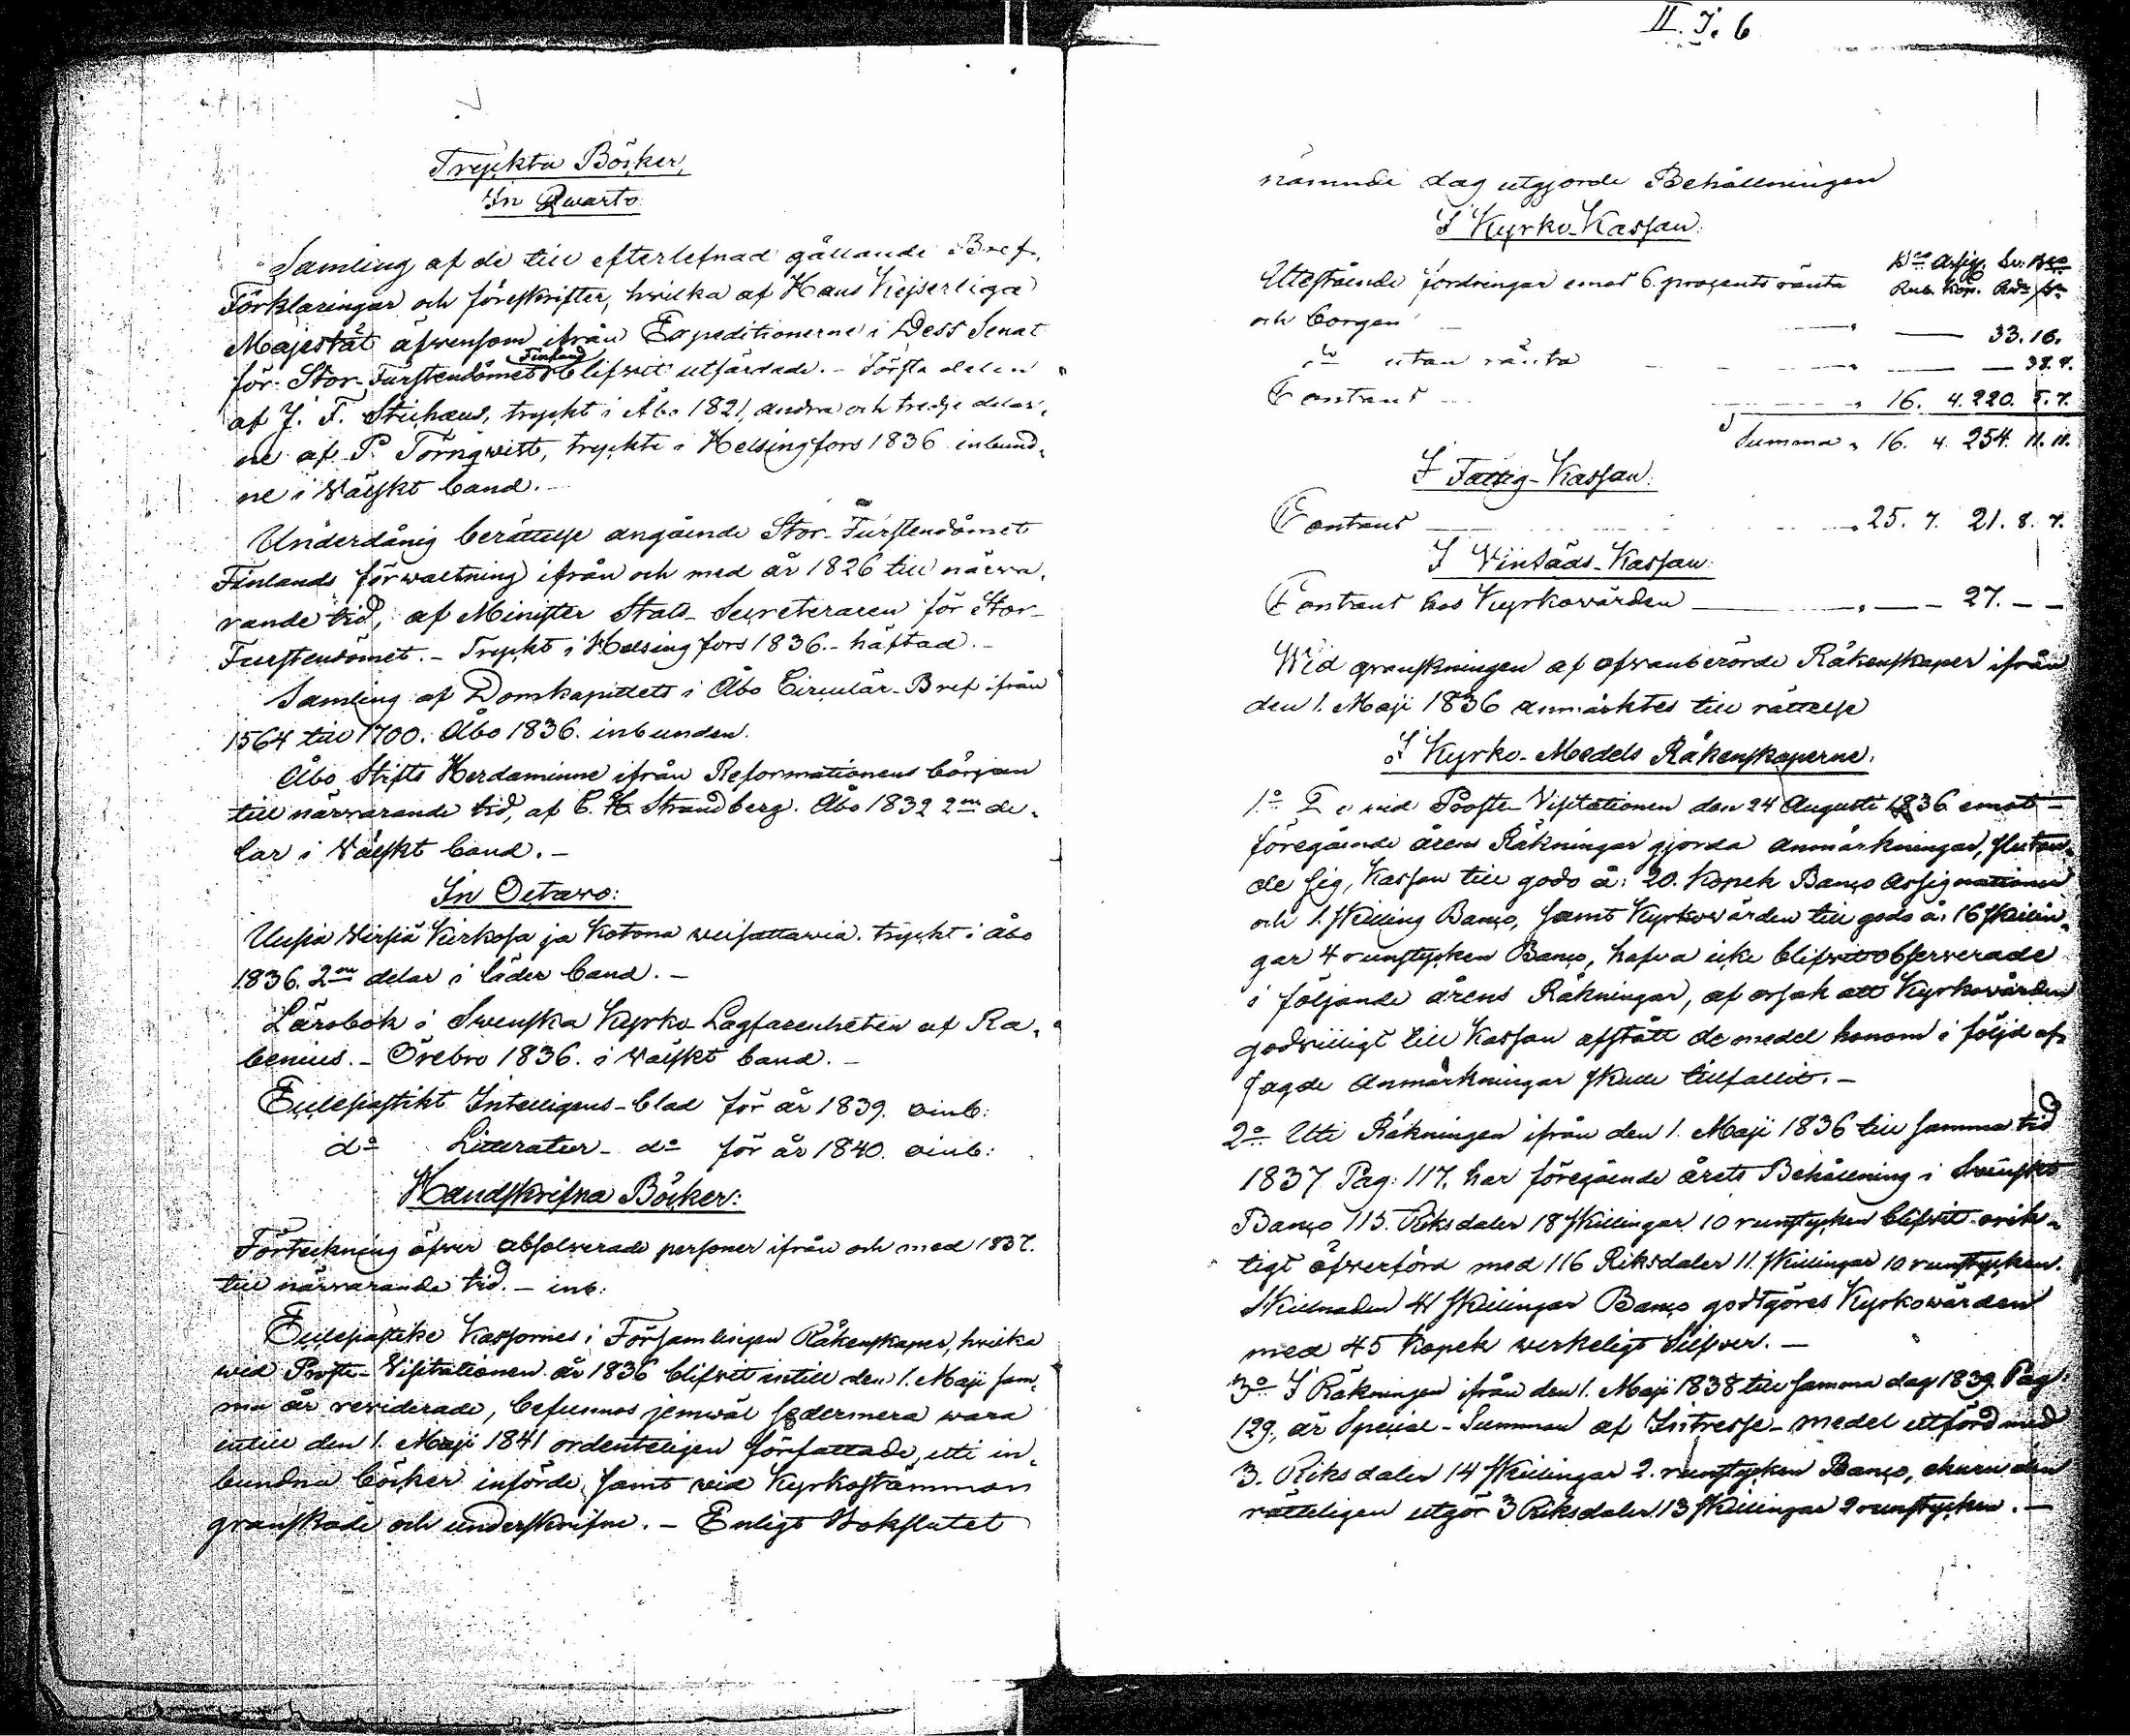 Tryckta Böcker,
In Qwarto
Samling af de till efterlefnad gällande Bref,
Förklaringar och föreskrifter, hvilka af Hans Kejserliga
Majestät äfvensom ifrån Expeditionerne i Dess Senat
för Stor-Furstendömet Finland blifvit utfärdade. - Första delen
af J. F. Stichæus, tryckt i Åbo 1821, andra och tredje delar-
ne af P. Törnqwist, tryckte i Helsingfors 1836 inbund-
ne i Wälskt band. -
Underdånig berättelse angående Stor-Furstendömet
Finlands förwaltning ifrån och med år 1826 till närva-
rande tid, af Minister Stats-Secreteraren för Stor-
Furstendömet. - Tryckt i Helsingfors 1836. - häftad. -
Samling af Domkapitlets i Åbo Circulär-Bref ifrån
1564 till 1700. Åbo 1836. inbunden.
Åbo Stifts Herdaminne ifrån Reformationens början
till närvarande tid, af C. H. Strandberg. Åbo 1832 2ne de-
lar i Wälskt band. -
In Octavo:
Uusia Wirsiä Kirkosa ja Kotona weisattawia. tryckt i Åbo
1836. 2ne delar i läder band. -
Lärobok i Swenska Kyrko-Lagfarenheten af Ra-
benius. - Örebro 1836. i Wälskt band. -
Ecclesiastikt Intelligens-blad för år 1839. oinb:
do Litteratur- do för år 1840. oinb:
Handskrifna Böcker:
Förteckning öfver absolverade personer ifrån och med 1837.
till närvarande tid. - inb:
Ecclesiastike Kassornes i Församlingen Räkenskaper, hvilka
wid Proste-Visitationen år 1836 blifvit intill den 1. Maji sam-
ma år reviderade, befunnos jemwäl sedermera wara
intill den 1. Maji 1841 ordenteligen författade, uti in-
bundna böcker införde, samt vid Kyrkostämman
granskade och underskrifne. - Enligt Bokslutet
II. J. 6
nämnde dag utgjorde Behållningen
I Kyrko-Kassan:
Bco Assign. Sv. Bco
Utestående fordringar emot 6. procents ränta Rub. Kop. Rdr
och borgen — 33. 16.
do utan ränta — 38. 4.
Contant — 16. 4. 220. 5. 7.
Summa 16. 4. 254. 11. 11.
I Fattig-Kassan:
Contant — 25. 7. 21. 8. 7.
I Winsäds-Kassan:
Contant hos Kyrkovärden — 27. — —
Wid granskningen af ofvanberörde Räkenskaper ifrån
den 1. Maji 1836 anmärktes till rättelse
I Kyrko-Medels Räkenskaperne.
1o De vid Proste-Visitationen den 24 Augusti 1836 emot
föregående årens Räkningar gjorda anmärkningar, slutan-
de sig, Kassan till godo å: 20. Kopek Banco Assignationer
och 1. Skilling Banco, samt Kyrkovärden till godo å: 16 Skillin-
gar 4 runstycken Banco, hafva icke blifvit observerade
i följande årens Räkningar, af orsak att Kyrkovärden
godvilligt till Kassan afstått de medel honom i följd af
sagde Anmärkningar skulle tillfallit. -
2o Uti Räkningen ifrån den 1. Maji 1836 till samma tid
1837 Pag: 117. har föregående årets Behållning i Svenskt
Banco 115. Riksdaler 18 Skillingar 10 runstycken blifvit orik-
tigt öfverförd med 116 Riksdaler 11. Skillingar 10 runstycken.
Skillnaden 41 Skillingar Banco godtgöres Kyrkovärden
med 45 Kopek verkeligt Silfver. -
3o I Räkningen ifrån den 1. Maji 1838 till samma dag 1839. Pag:
129, är Special-Summan af Intresse-medel utförd med
3. Riksdaler 14 Skillingar 2. runstycken Banco, ehuru den
rätteligen utgör 3 Riksdaler 13 Skillingar 2 runstycken. -